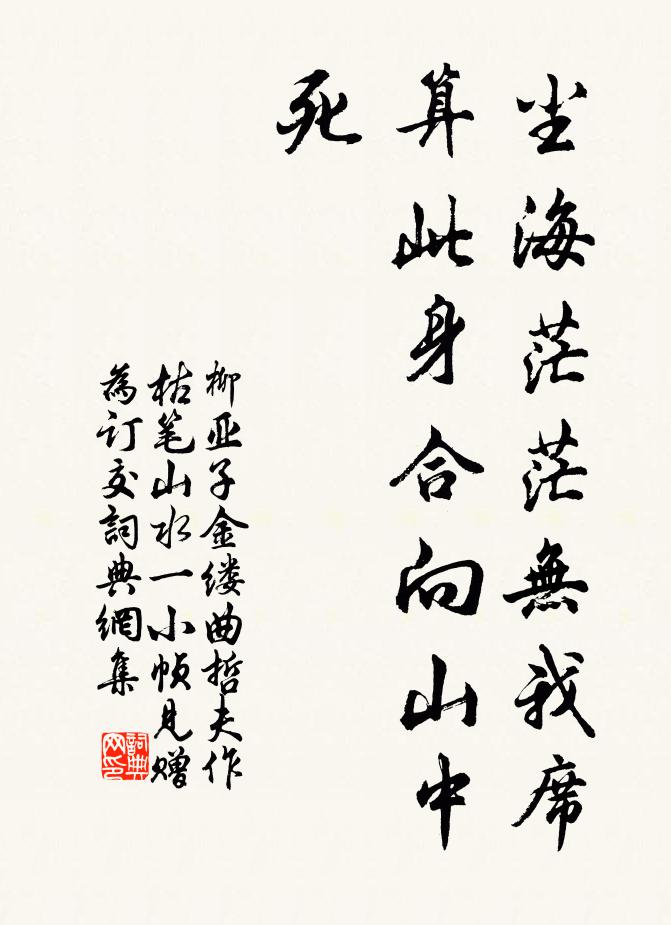 尘海茫茫無我席
算此身合向山中
死
柳亚子金缕曲哲夫作
枯笔山水一小帧見赠
為订交詞典網集
詞典
网印